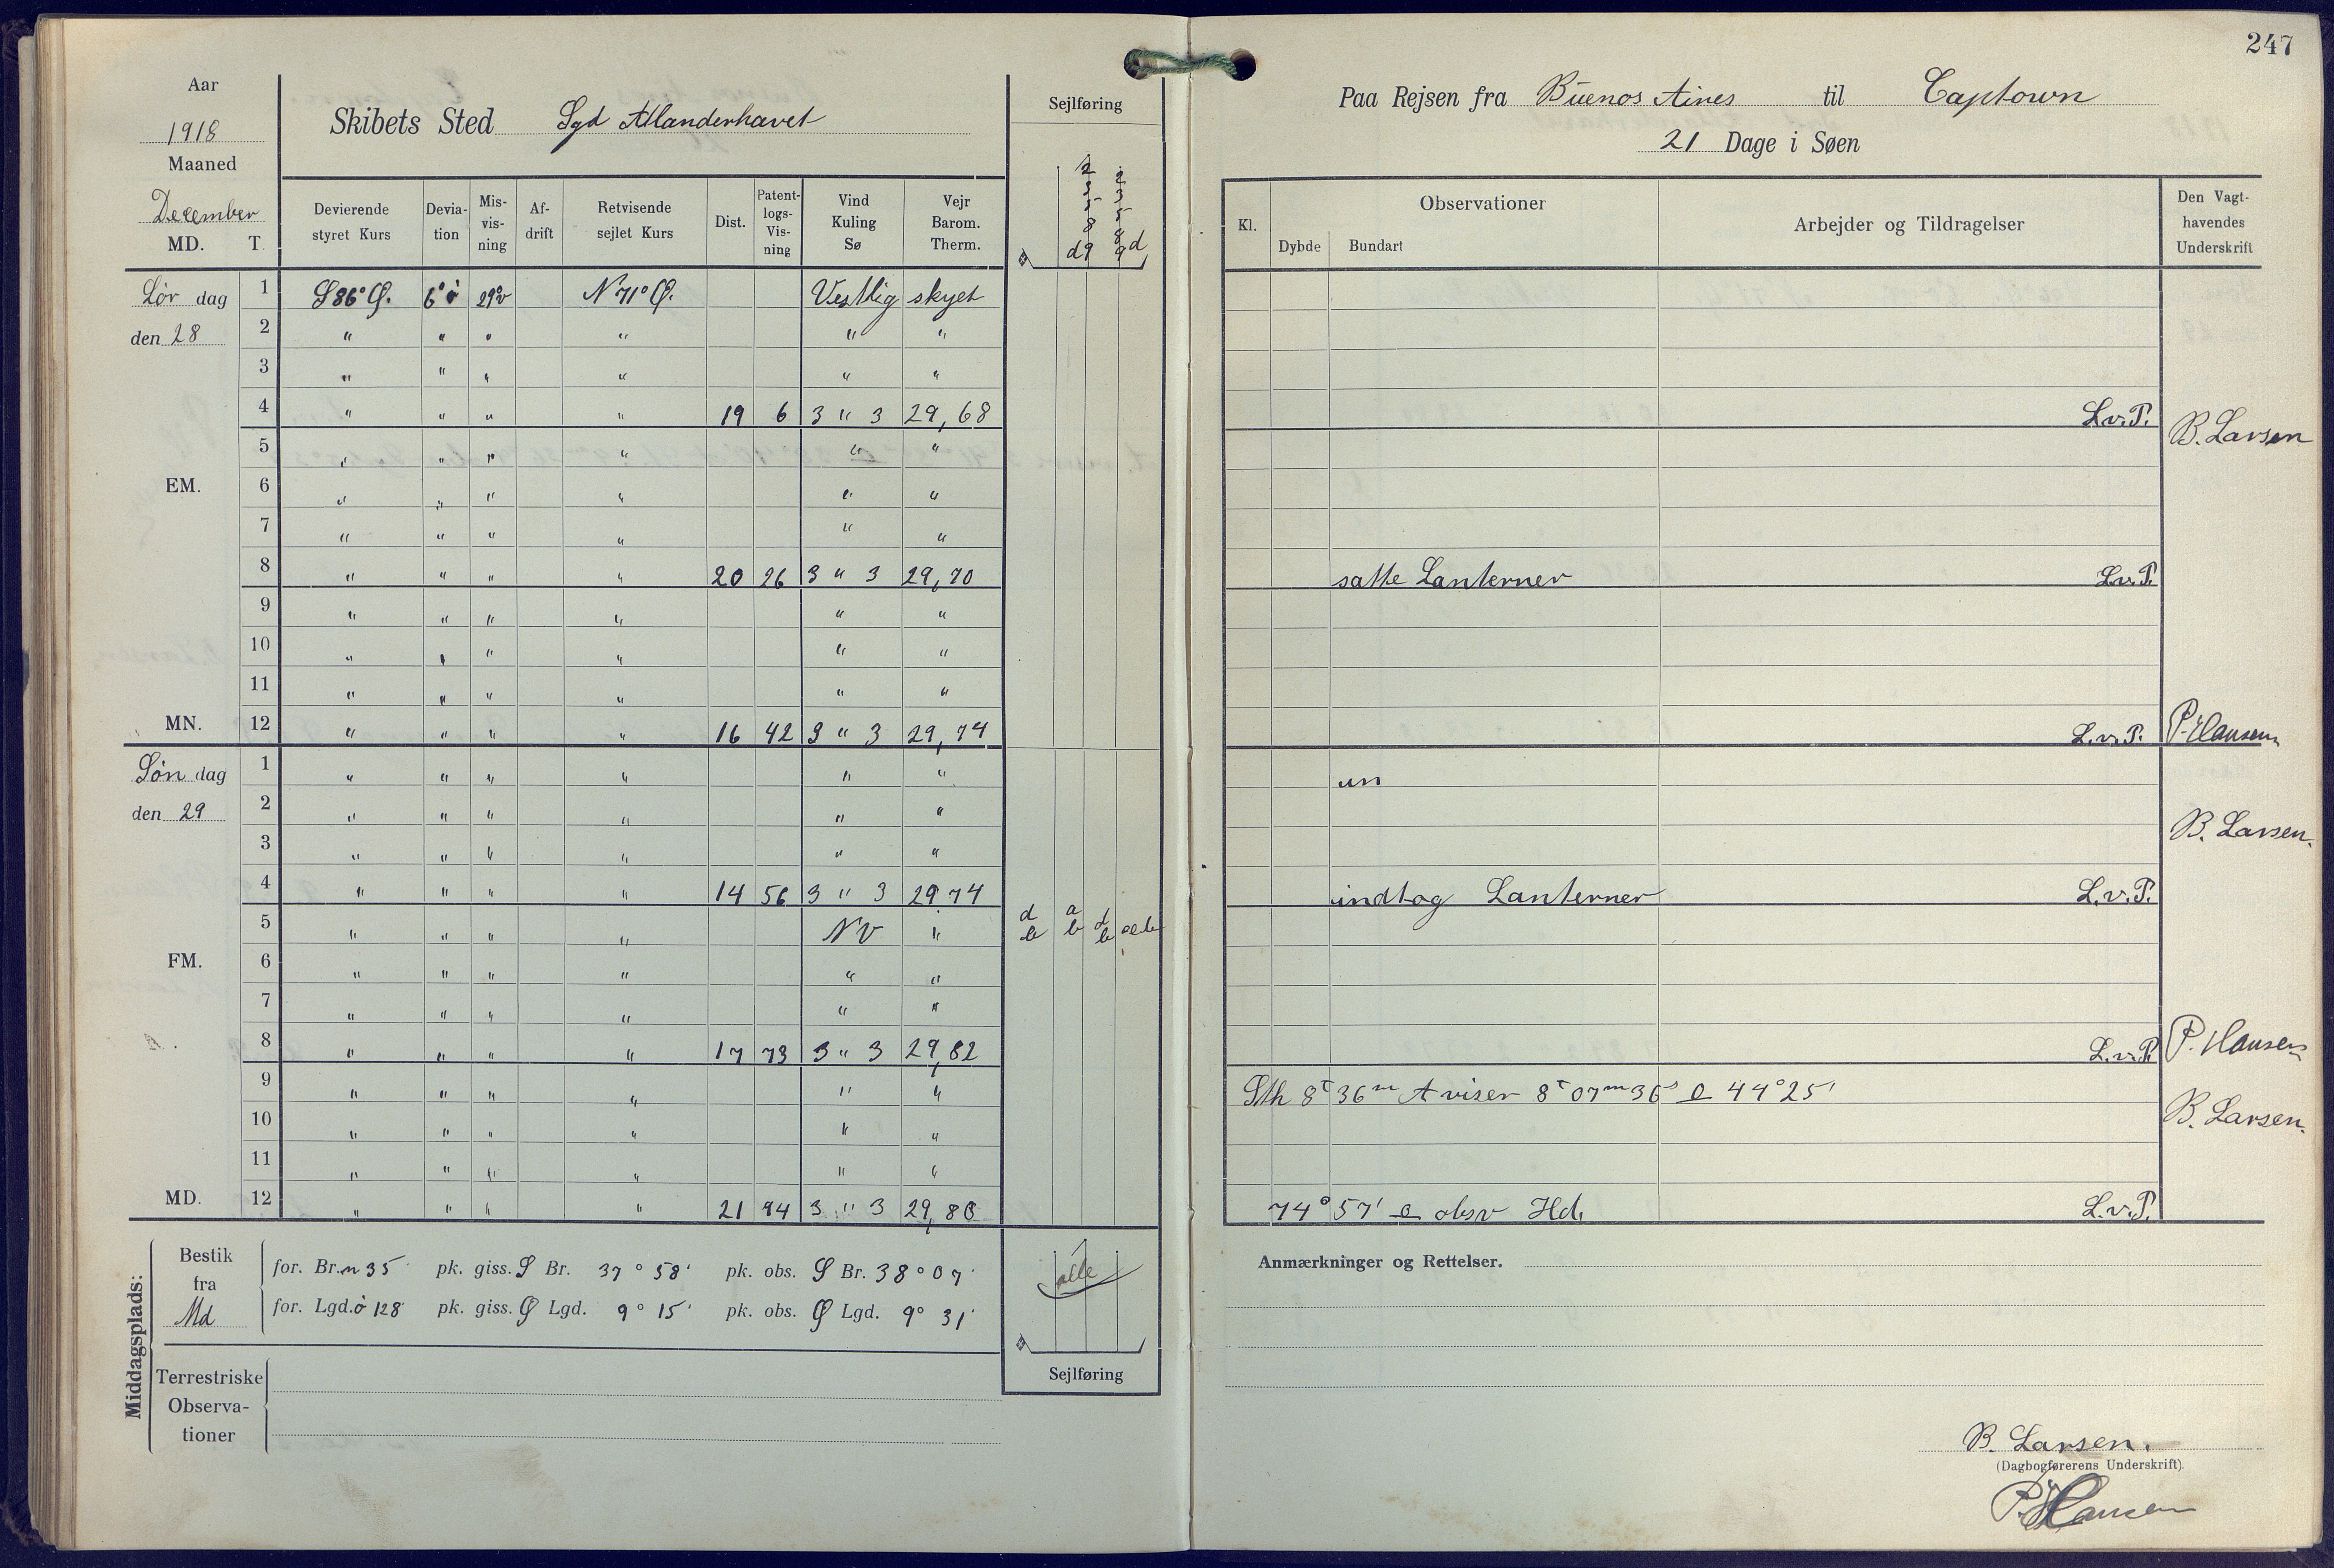 247
Aar
1918
Maaned
December
MD. T.
Skibets Sted Syd Atlanderhavet
Sejlføring
Paa Rejsen fra Buenos Aires til Captown
21 Dage i Søen
Devierende styret Kurs | Devia-tion | Mis-vis-ning | Af-drift | Retvisende sejlet Kurs | Dist. | Patent-logs-Vis-ning | Vind Kuling Sø | Vejr Barom. Therm.
Kl. | Observationer | Dybde | Bundart | Arbejder og Tildragelser | Den Vagt-havendes Underskrift
2 2
3 3
5 5
8 8
d9 9d
Lør dag 1 S 86° Ø. 6° ö 29° v N 71° Ø. Vestlig skyet
den 28 2 " " " " " "
3 " " " " " "
4 " " " " 19 6 3 " 3 29,68 L.v.P. B. Larsen
5 " " " " " "
EM. 6 " " " " " "
7 " " " " " "
8 " " " " 20 26 3 " 3 29,70 satte Lanterner L.v.P.
9 " " " " " "
10 " " " " " "
11 " " " " " "
MN. 12 " " " " 16 42 3 " 3 29,74 L.v.P. P. Hansen
Søn dag 1 " " " " " " un
den 29 2 " " " " " " B. Larsen.
3 " " " " " "
4 " " " " 14 56 3 " 3 29 74 indtog Lanterner L.v.P.
5 " " " " NV "
FM. 6 " " " " " "
7 " " " " " "
8 " " " " 17 73 3 " 3 29,82 L.v.P. P. Hansen
9 " " " " " " Sth 8 t 36 m A viser 8 t 07 m 36 s 44° 25'
10 " " " " " " B. Larsen.
11 " " " " " "
MD. 12 " " " " 21 94 3 " 3 29,80 74° 57' obsv Hd. L.v.P.
Middagsplads:
Bestik fra Md
for. Br. n 35' pk. giss. S Br. 37° 58' pk. obs. S Br. 38° 07'
for. Lgd. ö 128' pk. giss. Ø Lgd. 9° 15' pk. obs. Ø Lgd. 9° 31'
alle
Sejlføring
Terrestriske
Observa-
tioner
Anmærkninger og Rettelser.
B. Larsen.
(Dagbogførerens Underskrift).
P. Hansen